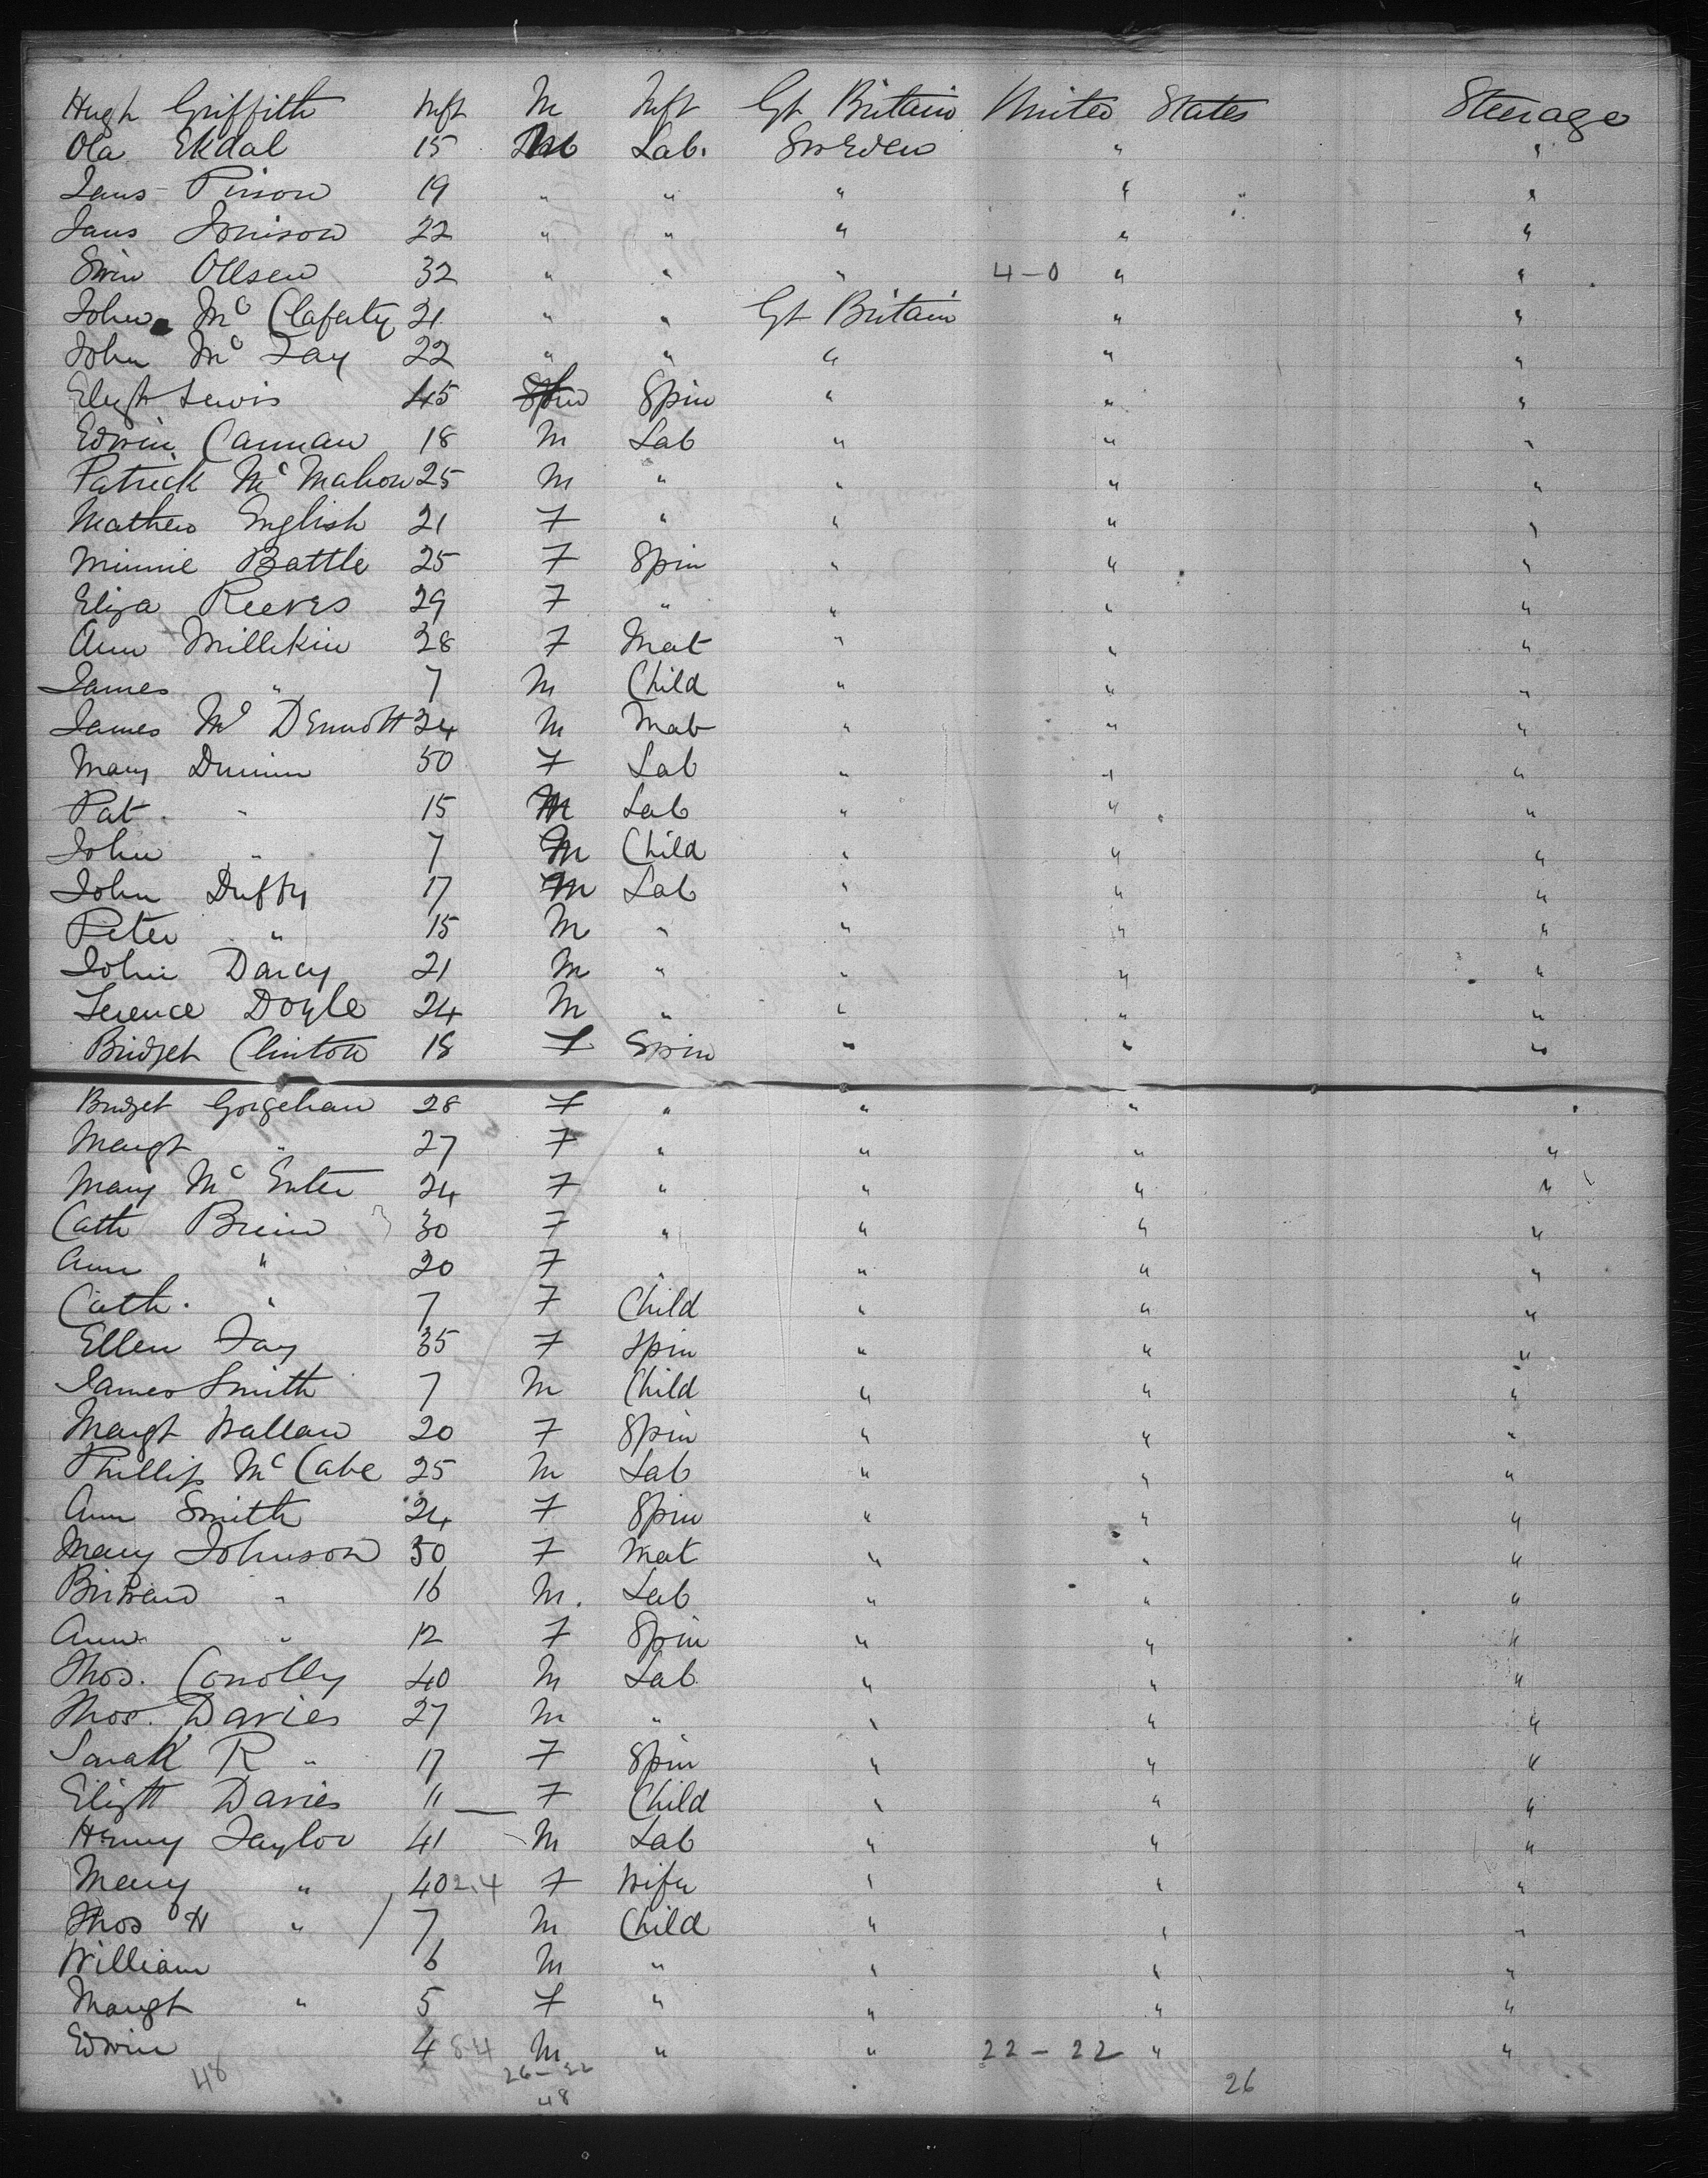 Hugh Griffith Inft M Inft Gt Britain United States Steerage
Ola Ekdal 15 M Lab. Sweden " "
Jans Pirson 19 " " " " "
Jans Jonison 22 " " " " "
Swin Ollsen 32 " " " 4-0 " "
John Mc Claferty 21 " " Gt Britain " "
John Mc Fay 22 " " " " "
Lewis 45 Spin " " "
Edwin Cannan 18 M Lab " " "
Patrick Mc Mahon 25 M " " " "
Mathew English 21 F " " " "
Minnie Battle 25 F Spin " " "
Eliza Reeves 29 F " " " "
Ann Millikin 28 F Mat " " "
James " 7 M Child " " "
James Mc Dermott 24 M Mat " " "
Mary 50 F Lab " " "
Pat " 15 M Lab " " "
John " 7 M Child " " "
John Duffy 17 M Lab " " "
Peter " 15 M " " " "
John Darcy 21 M " " " "
Terence Doyle 24 M " " " "
Bridget Clinton 18 F Spin " " "
Bridget Gorgehan 28 F " " " "
Margt " 27 F " " " "
Mary Mc Enter 24 F " " " "
Cath Brein 30 F " " " "
Ann " 20 F " " " "
Cath. " 7 F Child " " "
Ellen Fay 35 F Spin " " "
James Smith 7 M Child " " "
Margt Wallace 20 F Spin " " "
Phillip Mc Cabe 25 M Lab " " "
Ann Smith 24 F Spin " " "
Mary Johnson 50 F Mat " " "
" 16 M. Lab " " "
Ann " 12 F Spin " " "
Thos. Conolly 40 M Lab " " "
Thos. Davies 27 M " " " "
Sarah R " 17 F Spin " " "
Elizth Davies 11 F Child " " "
Henry Taylor 41 M Lab " " "
Mary " 40 2.4 F Wife " " "
Thos H " 7 M Child " " "
William 6 M " " " "
Margt " 5 F " " " "
Edwin 4 84 M " " 22-22 " "
48 26-22 26
48